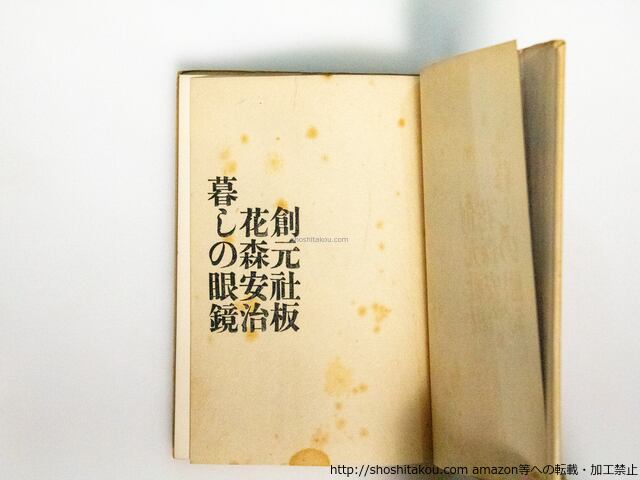 創元社板
花森安治
暮しの眼鏡
shoshitakou.com
http://shoshitakou.com amazon等への転載・加工禁止